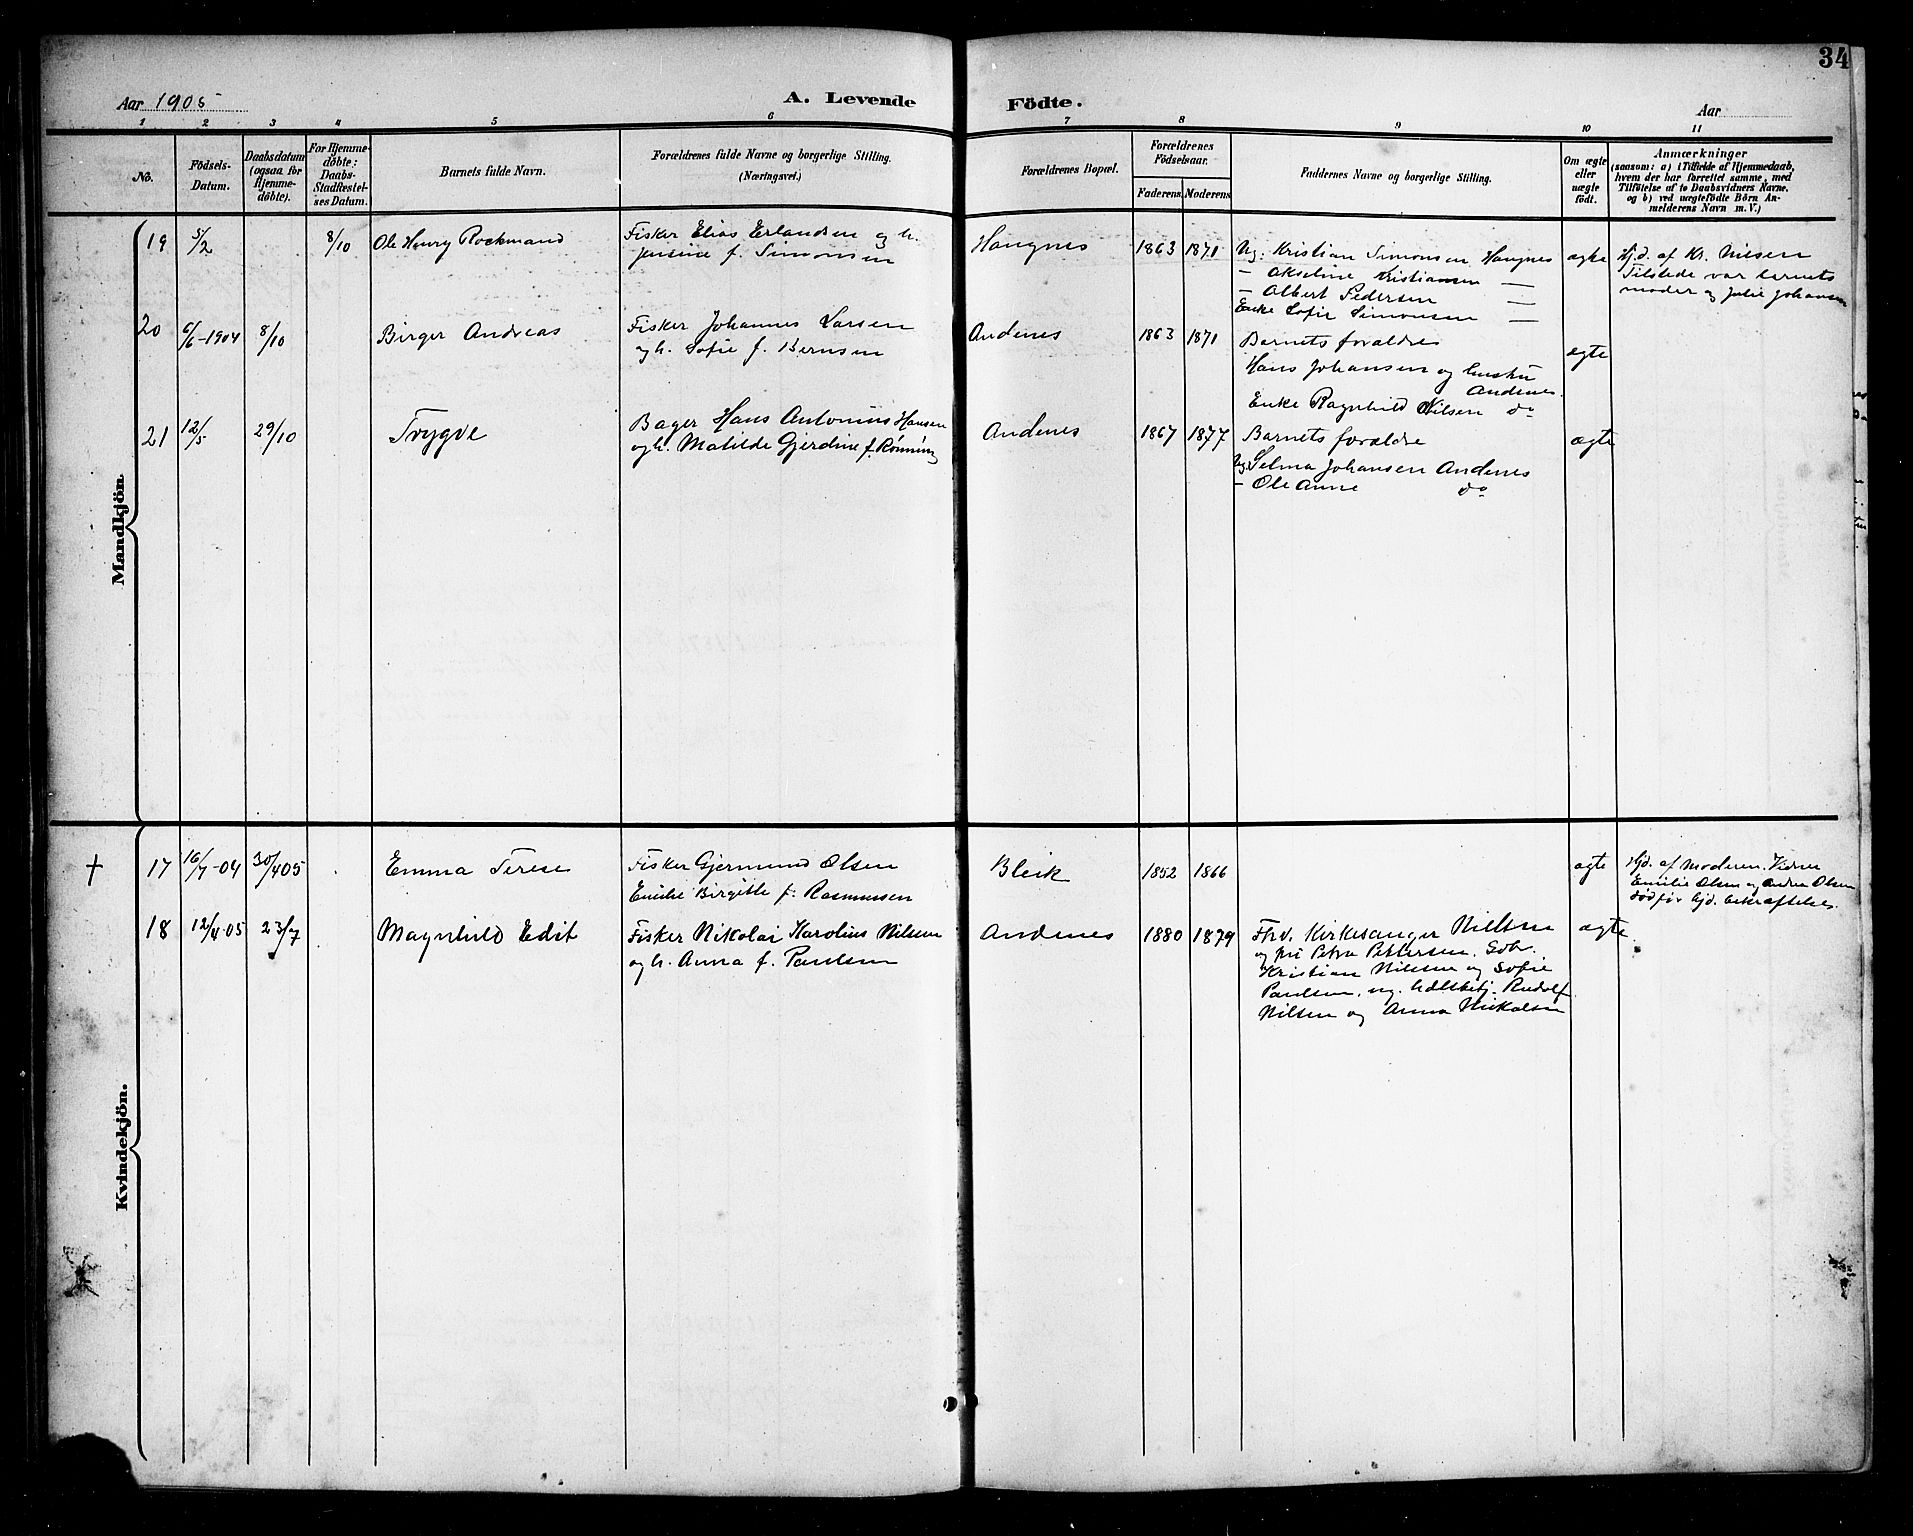 34
Aar 1905
A. Levende Födte.
Aar
1 2 3 4 5 6 7 8 9 10 11
No.
Födsels-Datum.
Daabsdatum (ogsaa for Hjemme-döbte).
For Hjemme-döbte: Daabs-Stadfæstel-ses Datum.
Barnets fulde Navn.
Forældrenes fulde Navne og borgerlige Stilling. (Næringsvei.)
Forældrenes Bopæl.
Forældrenes Födselsaar.
Faderens Moderens
Faddernes Navne og borgerlige Stilling.
Om ægte eller uægte födt.
Anmærkninger
(saasom: a) i Tilfælde af Hjemmedaab, hvem der har forrettet samme, med Tilföielse af to Daabsvidners Navne. og b) ved uægtefödte Börn An-melderens Navn m. V.)
Mandkjön.
19 5/2 8/10 Ole Henry Rockmand
Fisker Elias Erlandsen og h.
Jensine f. Simonsen
Haugnes 1863 1871
Ug. Kristian Simonsen Haugnes
— Akseline Kristiansen —
— Albert Pedersen —
Enke Sofie Simonsen —
ægte
Hjd. af Kr. Nilsen
Tilstede var barnets
moder og Julie Johansen
20 6/6-1904 8/10 Birger Andreas
Fisker Johannes Larsen
og h. Sofie f. Bernsen
Andenes 1863 1871
Barnets forældre
Hans Johansen og hustru
Andenes
Enke Ragnhild Nilsen do
ægte
21 12/5 29/10 Trygve
Bager Hans Antonius Hansen
og h. Matilde Gjerdine f. Rønning
Andenes 1867 1877
Barnets forældre
Ug. Selma Johansen Andenes
— Ole Anne do
ægte
Kvindekjön.
† 17 16/7-04 30/4 05 Emma Terese
Fisker Gjermund Olsen
Emilie Birgitte f. Rasmussen
Bleik 1852 1866
ægte
Hjd. af Moderen. Vidner
Emilie Olsen og Andrea Olsen
Död för hjd. bekræftelse.
18 12/4 05 23/7 Magnhild Edit
Fisker Nikolai Karolius Nilsen
og h. Anna f. Paulsen
Andenes 1880 1879
Fhv. Kirkesanger Nilsen
og fru Petra Pettersen. Gbr.
Kristian Nilsen og Sofie
Paulsen, ug. Rudolf
Nilsen og Anna Nikolsen
ægte